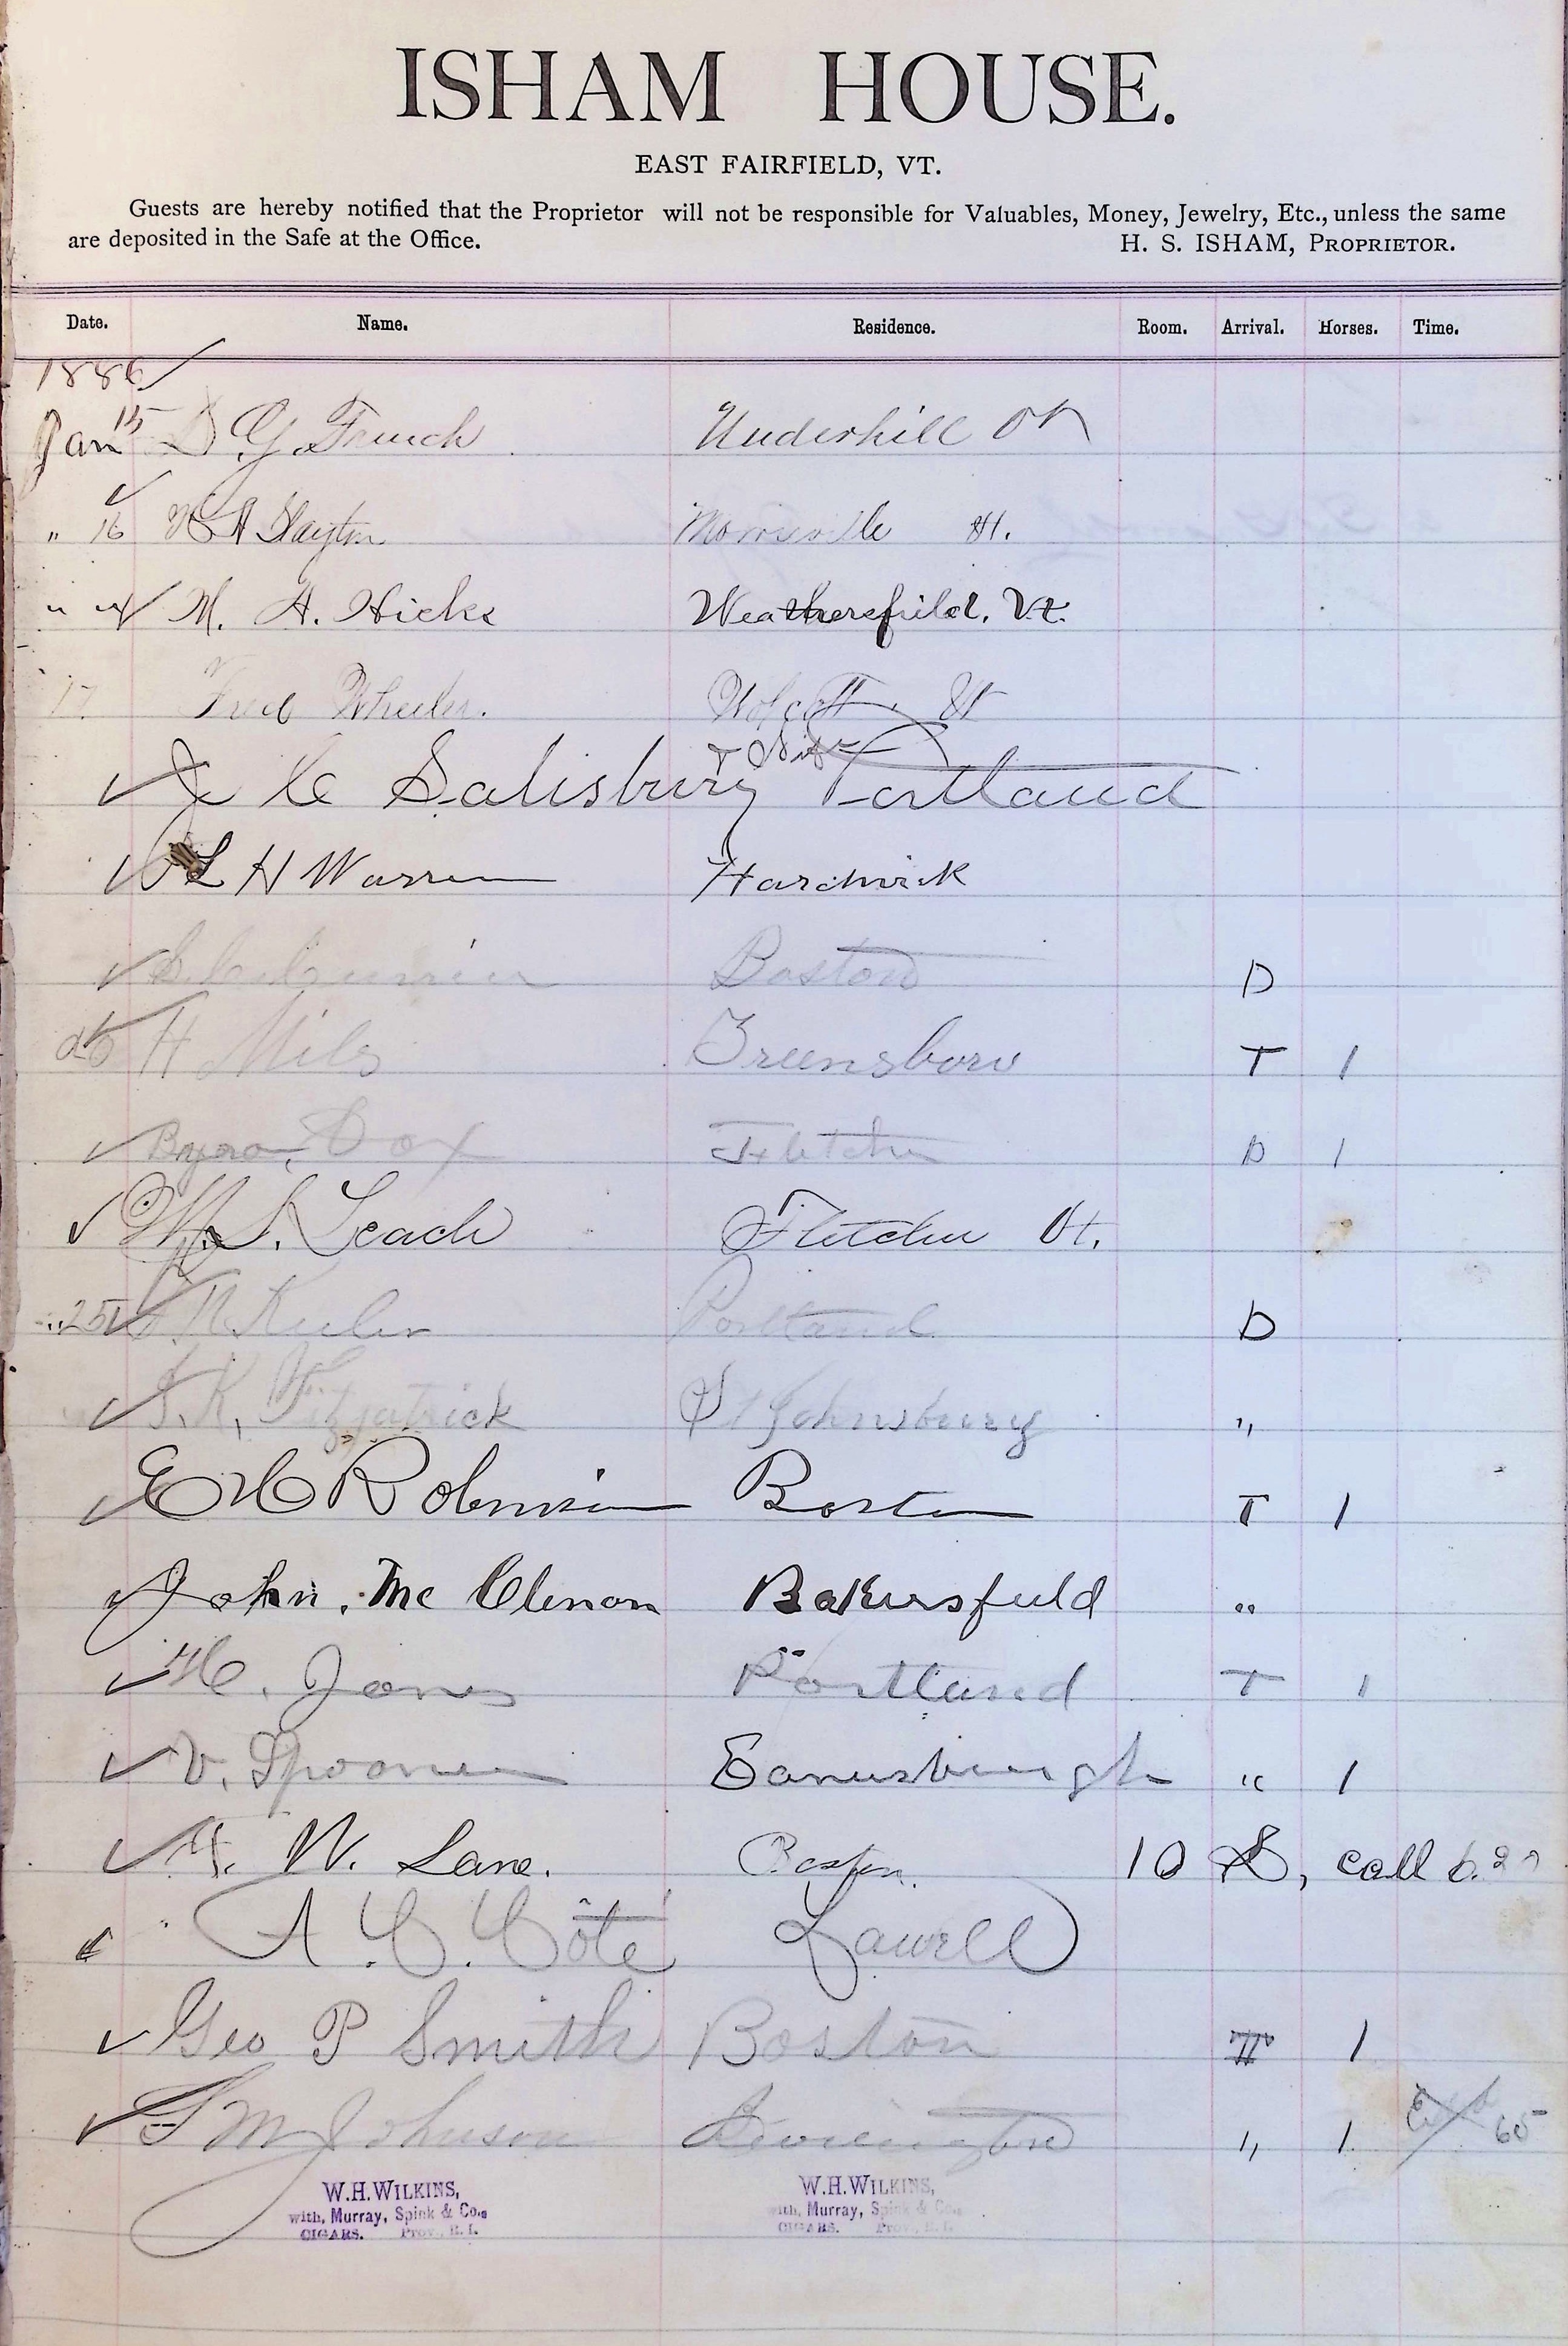 ISHAM HOUSE.
EAST FAIRFIELD, VT.
Guests are hereby notified that the Proprietor will not be responsible for Valuables, Money, Jewelry, Etc., unless the same
are deposited in the Safe at the Office. H. S. ISHAM, PROPRIETOR.
Date. Name. Residence. Room. Arrival. Horses. Time.
1886
Jan 15 D. G. French Underhill Vt
" 16 Slayton Morrisville Vt.
" " M. H. Hicks Weathersfield. Vt.
17 Fred Wheeler. Wolcott. Vt
J C Salisbury Portland
L H Warren Hardwick
Boston D
H Miles Greensboro T 1
Byron Cox Fletcher D 1
M. S. Leach Fletcher Vt.
" 25 Keeler Portland D
K. Fitzpatrick St Johnsbury "
E H Robinson Boston T 1
John. Mc Clenon Bakersfield "
H. Jones Portland T 1
V. Spooner " 1
W. Lane. Boston. 10 S, call 6.
A. C. Côté Lowell
Geo P Smith Boston T 1
M Johnson Burlington " 1 65
W.H. WILKINS, W.H. WILKINS,
with, Murray, Spink & Co., with, Murray, Spink & Co.,
CIGARS. Prov., R. I. CIGARS. Prov., R. I.